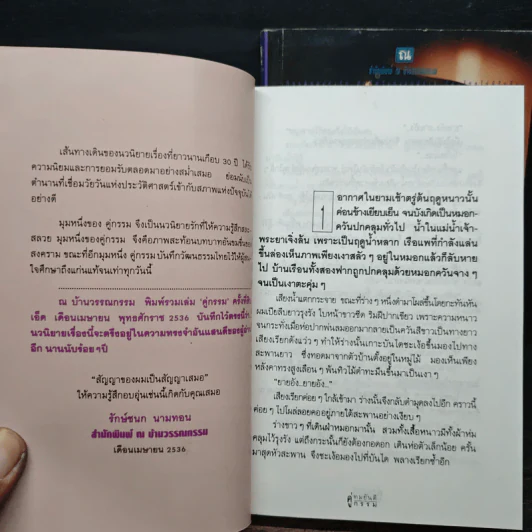 เส้นทางเดินของนวนิยายเรื่องที่ยาวนานเกือบ 30 ปี ได้รับ
ความนิยมและการยอมรับตลอดมาอย่างสม่ำเสมอ
ตำนานที่เชื่อมวัยวันแห่งประวัติศาสตร์เข้ากับสภาพแห่งปัจจุบัน
อย่างดี
มุมหนึ่งของ คู่กรรม จึงเป็นนวนิยายรักที่ให้ความรู้สึก
สลวย มุมหนึ่งของ คู่กรรม จึงคือภาพสะท้อนบทบาทอัน
สงคราม ขณะที่อีกมุมหนึ่ง คู่กรรม บันทึกวัฒนธรรมไทยไว้ให้ผู้
ใจศึกษาถึงแก่นแท้จนเท่าทุกวันนี้
ณ บ้านวรรณกรรม พิมพ์รวมเล่ม 'คู่กรรม' ครั้งที่
เอ็ด เดือนเมษายน พุทธศักราช 2536 บันทึกไว้ตรงนี้
นวนิยายเรื่องนี้จะตรึงอยู่ในความทรงจำอันแสนดีของ
อีก นานนับร้อย ๆ ปี
"สัญญาของผมเป็นสัญญาเสมอ"
ให้ความรู้สึกอบอุ่นเช่นนี้เกิดกับคุณเสมอ
รักษ์ชนก นามทอน
สำนักพิมพ์ ณ บ้านวรรณกรรม
เดือนเมษายน 2536
ณ
1
อากาศในยามเช้าตรู่ต้นฤดูหนาวนั้น
ค่อนข้างเยียบเย็น จนบังเกิดเป็นหมอก-
ควันปกคลุมทั่วไป น้ำในแม่น้ำเจ้า-
พระยาเจิ่งล้น เพราะเป็นฤดูน้ำหลาก เรือแพที่กำลังแล่น
ขึ้นล่องเห็นภาพเพียงเงาสลัว ๆ อยู่ในหมอกแล้วก็ลับหาย
ไป บ้านเรือนทั้งสองฟากถูกปกคลุมด้วยหมอกควันจาง ๆ
จนเป็นเงาตะคุ่ม ๆ
เสียงน้ำแตกกระจาย ขณะที่ร่าง ๆ หนึ่งดำมาโผล่ขึ้นโดยกะทันหัน
ผมเปียกลับยาวรุงรัง ใบหน้าขาวซีด ริมฝีปากเขียว เพราะความหนาว
จนกระทั่งเมื่อห่อปากพ่นลมออกมากลายเป็นควันสีขาวเป็นทางยาว
เสียงเรียกดังแว่ว ๆ ทำให้ร่างนั้นเกาะบันไดชะเง้อขึ้นมองไปทาง
สะพานยาว ซึ่งทอดมาจากตัวบ้านตั้งอยู่ในหมู่ไม้ มองเห็นเพียง
หลังคาทรงสูงเลือน ๆ พ้นทิวไม้ดำทะมึนขึ้นมาเป็นเงา ๆ
"ยายอัง..ยายอัง.."
เสียงเรียกค่อย ๆ ใกล้เข้ามา ร่างนั้นจึงกลั้นดำผุดลงไปอีก คราวนี้
ค่อย ๆ ไปโผล่ลอยคออยู่ภายใต้สะพานอย่างเงียบ ๆ
ร่างขาว ๆ ที่เดินฝ่าหมอกมานั้น สวมทั้งเสื้อหนาวมีทั้งผ้าห่ม
คลุมไว้รุงรัง แต่ถึงกระนั้นก็ยังต้องกอดอก เดินห่อตัวเล็กน้อย ครั้น
มาสุดหัวสะพาน จึงชะเง้อมองไปที่บันได พลางเรียกซ้ำอีก
ทมยันตี
คู่กรรม